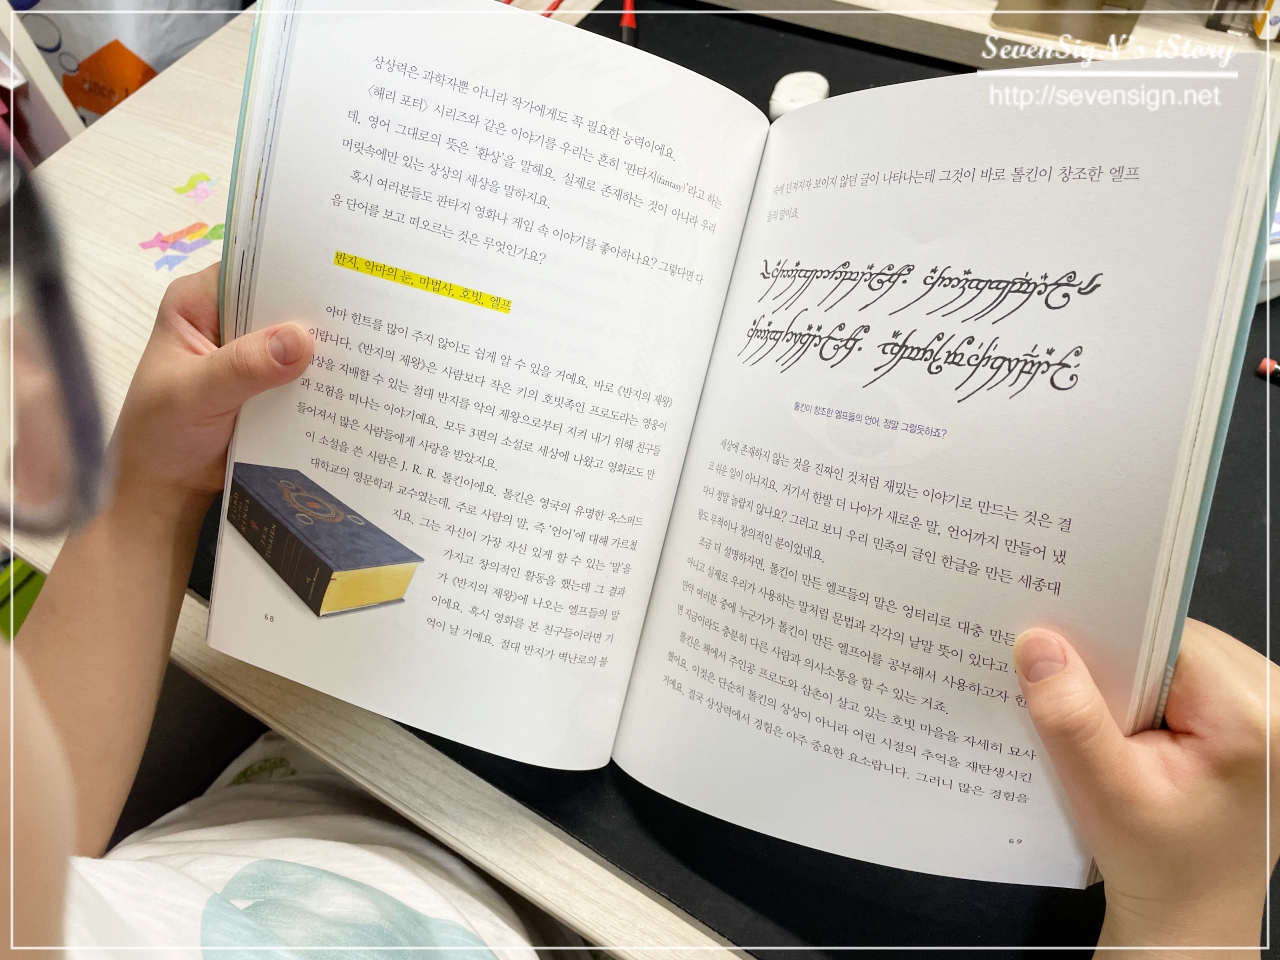 SevenSigN's iStory
http://sevensign.net
상상력은 과학자뿐 아니라 작가에게도 꼭 필요한 능력이에요.
《해리 포터》 시리즈와 같은 이야기를 우리는 흔히 '판타지(fantasy)'라고 하는
데, 영어 그대로의 뜻은 '환상'을 말해요. 실제로 존재하는 것이 아니라 우리
머릿속에만 있는 상상의 세상을 말하지요.
혹시 여러분들도 판타지 영화나 게임 속 이야기를 좋아하나요? 그렇다면 다
음 단어를 보고 떠오르는 것은 무엇인가요?
반지, 악마의 눈, 마법사, 호빗, 엘프
아마 힌트를 많이 주지 않아도 쉽게 알 수 있을 거예요. 바로 《반지의 제왕》
이랍니다. 《반지의 제왕》은 사람보다 작은 키의 호빗족인 프로도라는 영웅이
세상을 지배할 수 있는 절대 반지를 악의 제왕으로부터 지켜 내기 위해 친구들
과 모험을 떠나는 이야기예요. 모두 3편의 소설로 세상에 나왔고 영화로도 만
들어져서 많은 사람들에게 사랑을 받았지요.
이 소설을 쓴 사람은 J. R. R. 톨킨이에요. 톨킨은 영국의 유명한 옥스퍼드
대학교의 영문학과 교수였는데, 주로 사람의 말, 즉 '언어'에 대해 가르쳤
지요. 그는 자신이 가장 자신 있게 할 수 있는 '말'을
가지고 창의적인 활동을 했는데 그 결과
가 《반지의 제왕》에 나오는 엘프들의 말
이에요. 혹시 영화를 본 친구들이라면 기
억이 날 거예요. 절대 반지가 벽난로의 불
LORD
RINGS
TOLKIEN
68
속에 던져지자 보이지 않던 글이 나타나는데 그것이 바로 톨킨이 창조한 엘프
들의 말이죠.
톨킨이 창조한 엘프들의 언어, 정말 그럴듯하죠?
세상에 존재하지 않는 것을 진짜인 것처럼 재밌는 이야기로 만드는 것은 결
코 쉬운 일이 아니지요. 거기서 한발 더 나아가 새로운 말, 언어까지 만들어 냈
다니 정말 놀랍지 않나요? 그러고 보니 우리 민족의 글인 한글을 만든 세종대
왕도 무척이나 창의적인 분이었네요.
조금 더 설명하자면, 톨킨이 만든 엘프들의 말은 엉터리로 대충 만든
아니고 실제로 우리가 사용하는 말처럼 문법과 각각의 낱말 뜻이 있다고
만약 여러분 중에 누군가가 톨킨이 만든 엘프어를 공부해서 사용하고자 한
면 지금이라도 충분히 다른 사람과 의사소통을 할 수 있는 거죠.
톨킨은 책에서 주인공 프로도와 삼촌이 살고 있는 호빗 마을을 자세히 묘사
했어요. 이것은 단순히 톨킨의 상상이 아니라 어린 시절의 추억을 재탄생시킨
거예요. 결국 상상력에서 경험은 아주 중요한 요소랍니다. 그러니 많은 경험을
69